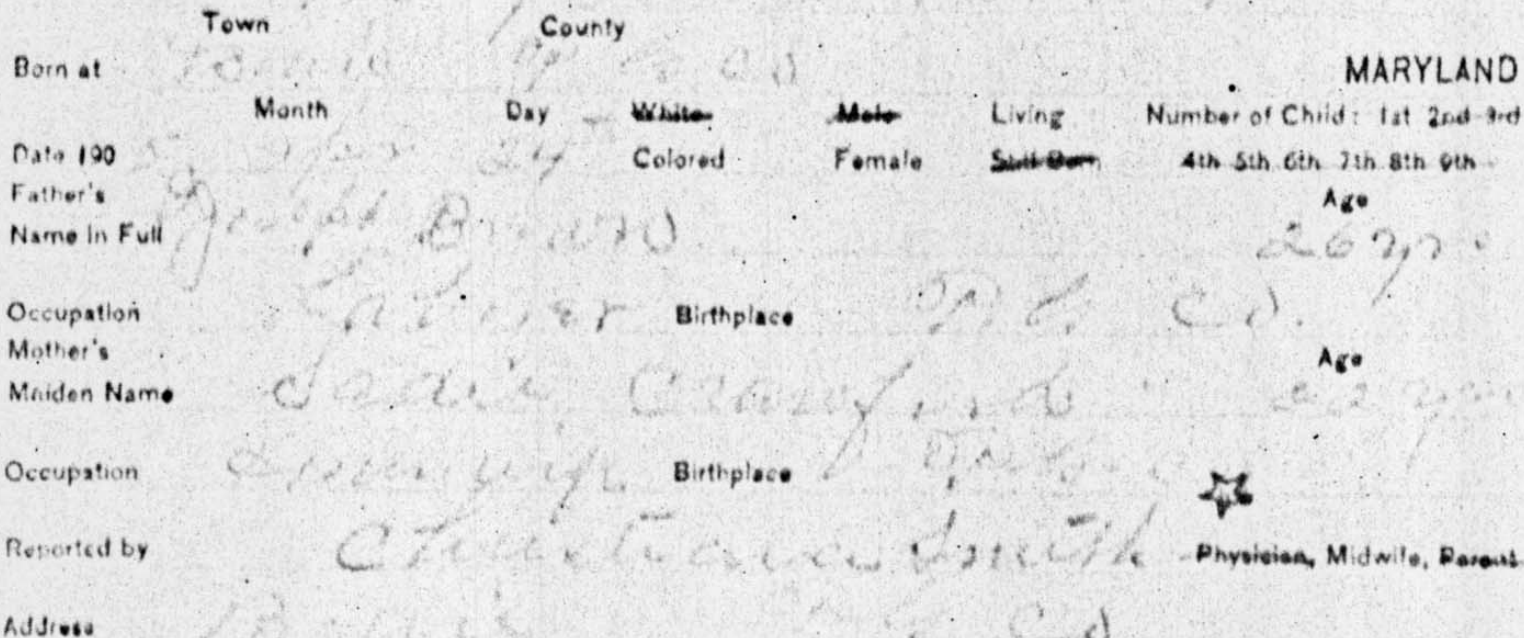 Town County
Born at Bowie P G Co MARYLAND
Month Day White Male Living Number of Child: 1st 2nd 3rd
Date 190 24 Colored Female Still Born 4th 5th 6th 7th 8th 9th
Father's Age
Name in Full Joseph Brown 26 yrs
Occupation Laborer Birthplace P. G. Co.
Mother's Age
Maiden Name Sadie Crawford
Occupation Housewife Birthplace
Reported by Christiana Smith Physician, Midwife, Parent
Address Bowie Co